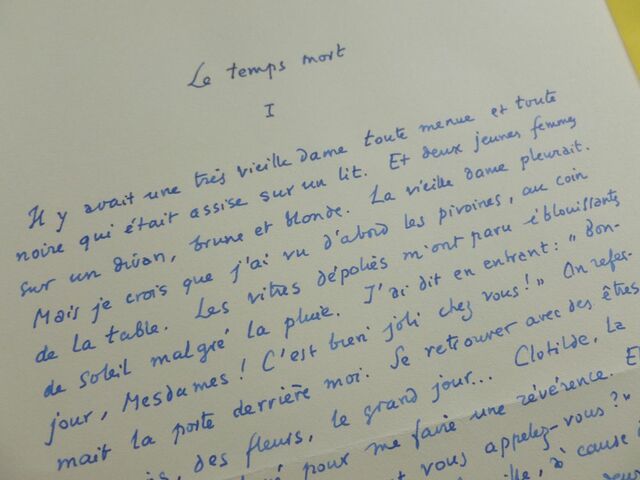 Le temps mort
I
Il y avait une très vieille dame toute menue et toute
noire qui était assise sur un lit. Et deux jeunes femmes
sur un divan, brune et blonde. La vieille dame pleurait.
Mais je crois que j'ai vu d'abord les pivoines, au coin
de la table. Les vitres dépolies m'ont paru éblouissantes
de soleil malgré la pluie. J'ai dit en entrant : "Bon-
jour, Mesdames ! C'est bien joli chez vous !" On refer-
mait la porte derrière moi. Se retrouver avec des êtres
des fleurs, le grand jour... Clotilde, la
pour me faire une révérence. Et
vous appelez-vous ?"
à cause